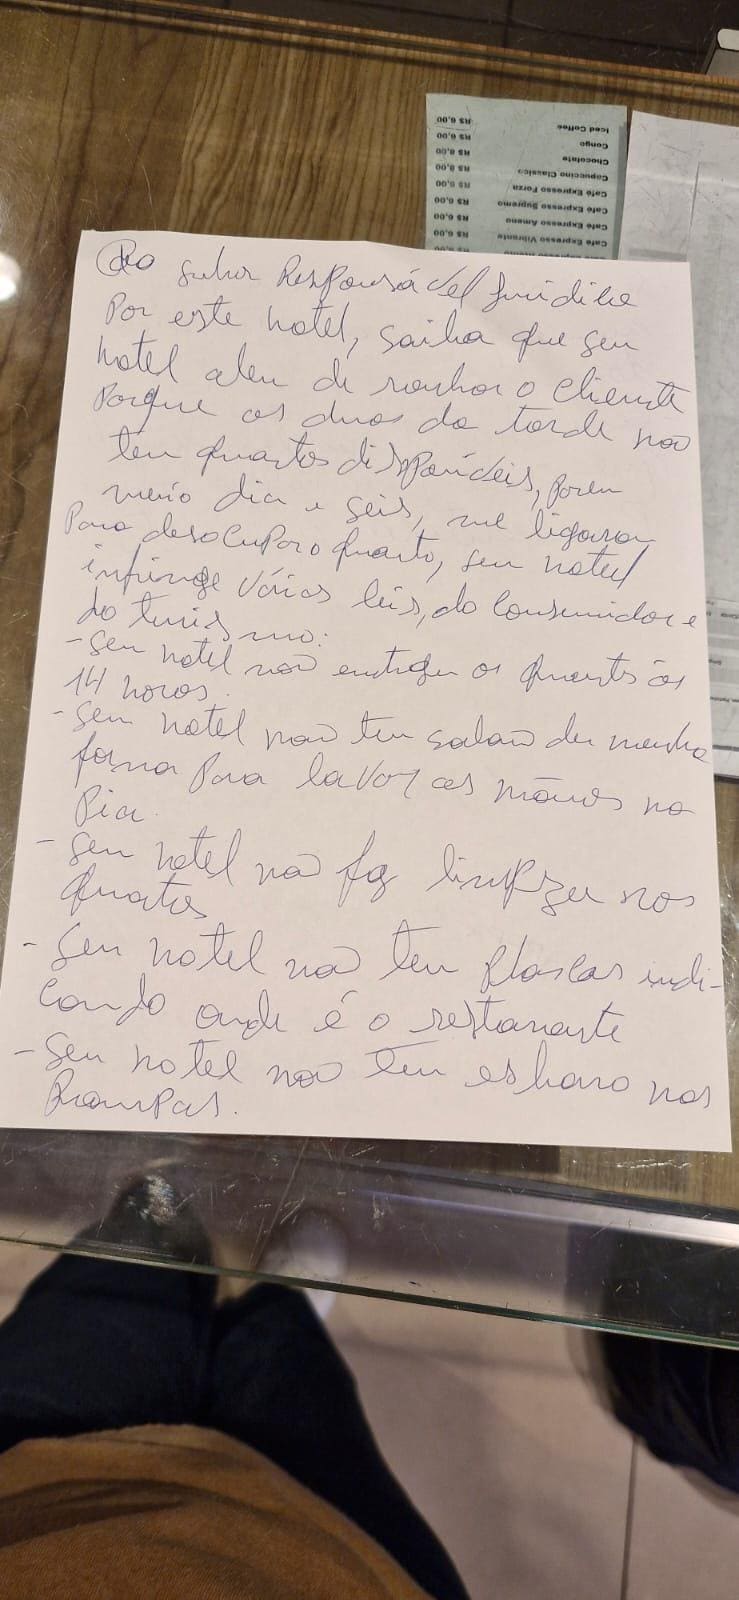 R$ 6,00 Iced Coffee
R$ 6,00 Congo
R$ 8,00 Chocolate
R$ 8,00 Capuccino Classico
R$ 6,00 Café Expresso Forza
R$ 6,00 Café Expresso Supremo
R$ 6,00 Café Expresso Ameno
R$ 6,00 Café Expresso Vibrante
Ao senhor Responsável jurídico
Por este hotel, saiba que seu
hotel alem de o cliente
Porque as duas da tarde não
tem quartos disponíveis, porem
meio dia e seis, me ligaram
Para desocupar o quarto, seu hotel
infringe várias leis, do consumidor e
do turismo:
- seu hotel não entrega os quartos às
14 horas.
- seu hotel não tem sabão de nenhuma
forma Para lavar as mãos na
Pia.
- seu hotel não faz limpeza nos
quartos
- seu hotel não tem placas indi-
cando onde é o restaurante
- seu hotel não tem nas
Rampas.